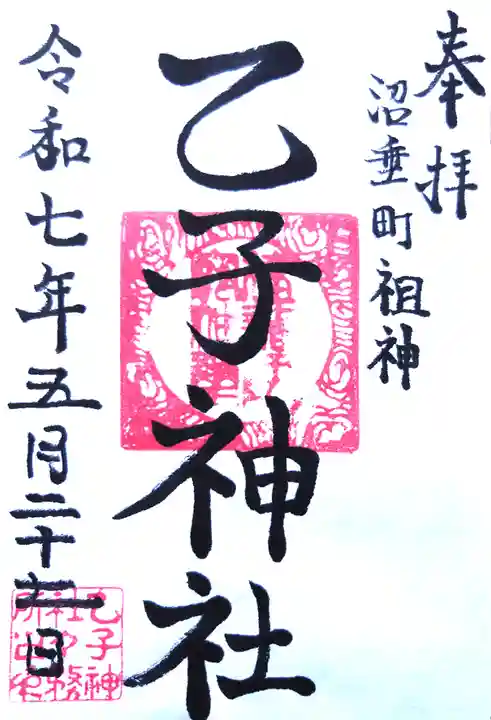 奉拝
沼垂町祖神
乙子神社
令和七年五月二十五日
乙子神
社印務